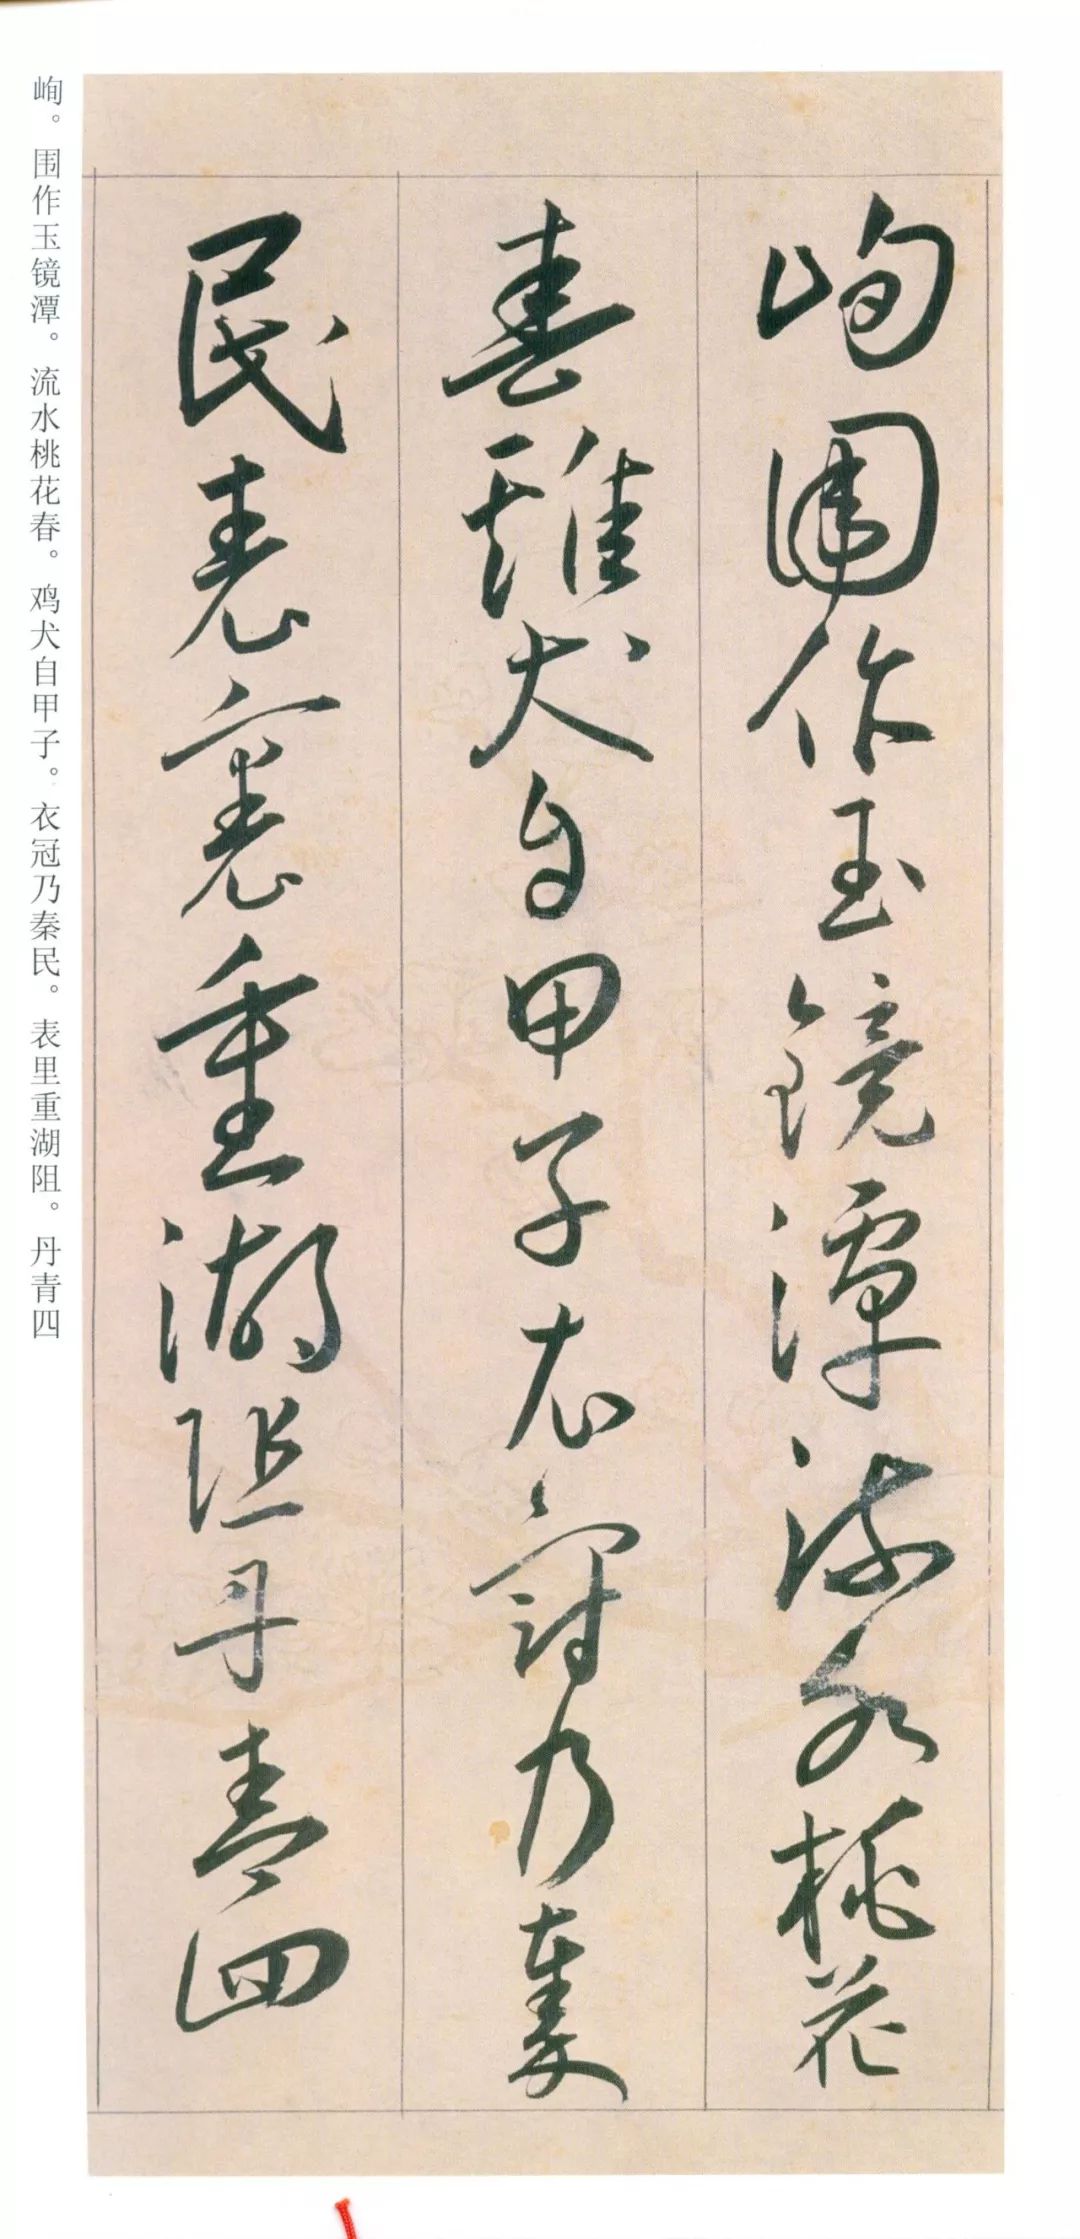 峋围作玉镜潭流水桃花
春鸡犬自甲子衣冠乃秦
民表里重湖阻丹青四
峋。围作玉镜潭。流水桃花春。鸡犬自甲子。衣冠乃秦民。表里重湖阻。丹青四